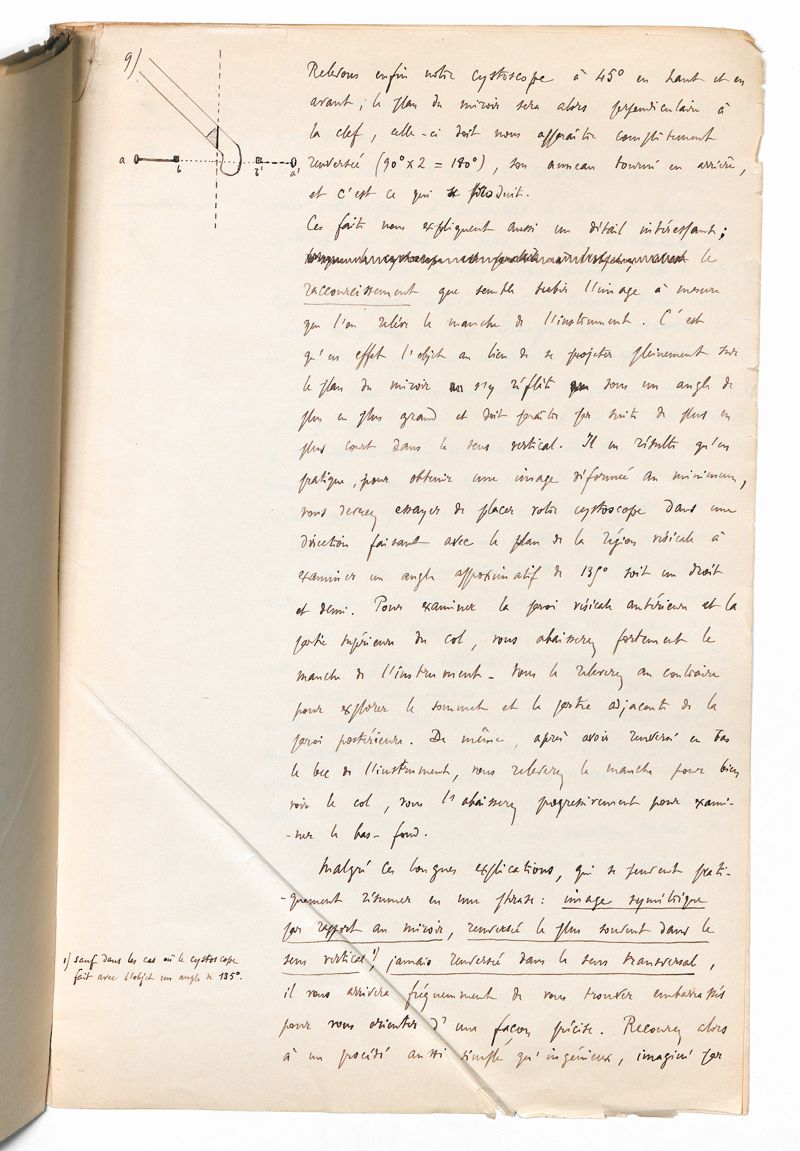 9)
a b b' a'
Relevons enfin notre cystoscope à 45° en haut et en
avant ; le plan du miroir sera alors perpendiculaire à
la clef, celle-ci doit nous apparaître complètement
renversée (90° x 2 = 180°), son anneau tourné en arrière,
et c'est ce qui se produit.
Ces faits nous expliquent aussi un détail intéressant ;
le
raccourcissement que semble subir l'image à mesure
que l'on relève le manche de l'instrument. C'est
qu'en effet l'objet au lieu de se projeter pleinement sur
le plan du miroir s'y réflète sous un angle de
plus en plus grand et doit paraître par suite de plus en
plus court dans le sens vertical. Il en résulte qu'en
pratique, pour obtenir une image déformée au minimum,
vous devrez essayer de placer votre cystoscope dans une
direction faisant avec le plan de la région vésicale à
examiner un angle approximatif de 135° soit un droit
et demi. Pour examiner la paroi vésicale antérieure et la
partie supérieure du col, vous abaisserez fortement le
manche de l'instrument - vous le relèverez au contraire
pour explorer le sommet et la partie adjacente de la
paroi postérieure. De même, après avoir renversé en bas
le bec de l'instrument, vous relèverez le manche pour bien
voir le col, vous l'abaisserez progressivement pour exami-
-ner le bas-fond.
Malgré ces longues explications, qui se peuvent prati-
-quement résumer en une phrase : image symétrique
par rapport au miroir, renversée le plus souvent dans le
sens vertical 1), jamais renversée dans le sens transversal,
il vous arrivera fréquemment de vous trouver embarrassés
pour vous orienter d'une façon précise. Recourez alors
à un procédé aussi simple qu'ingénieux, imaginé par
1) sauf dans les cas où le cystoscope
fait avec l'objet un angle de 135°.